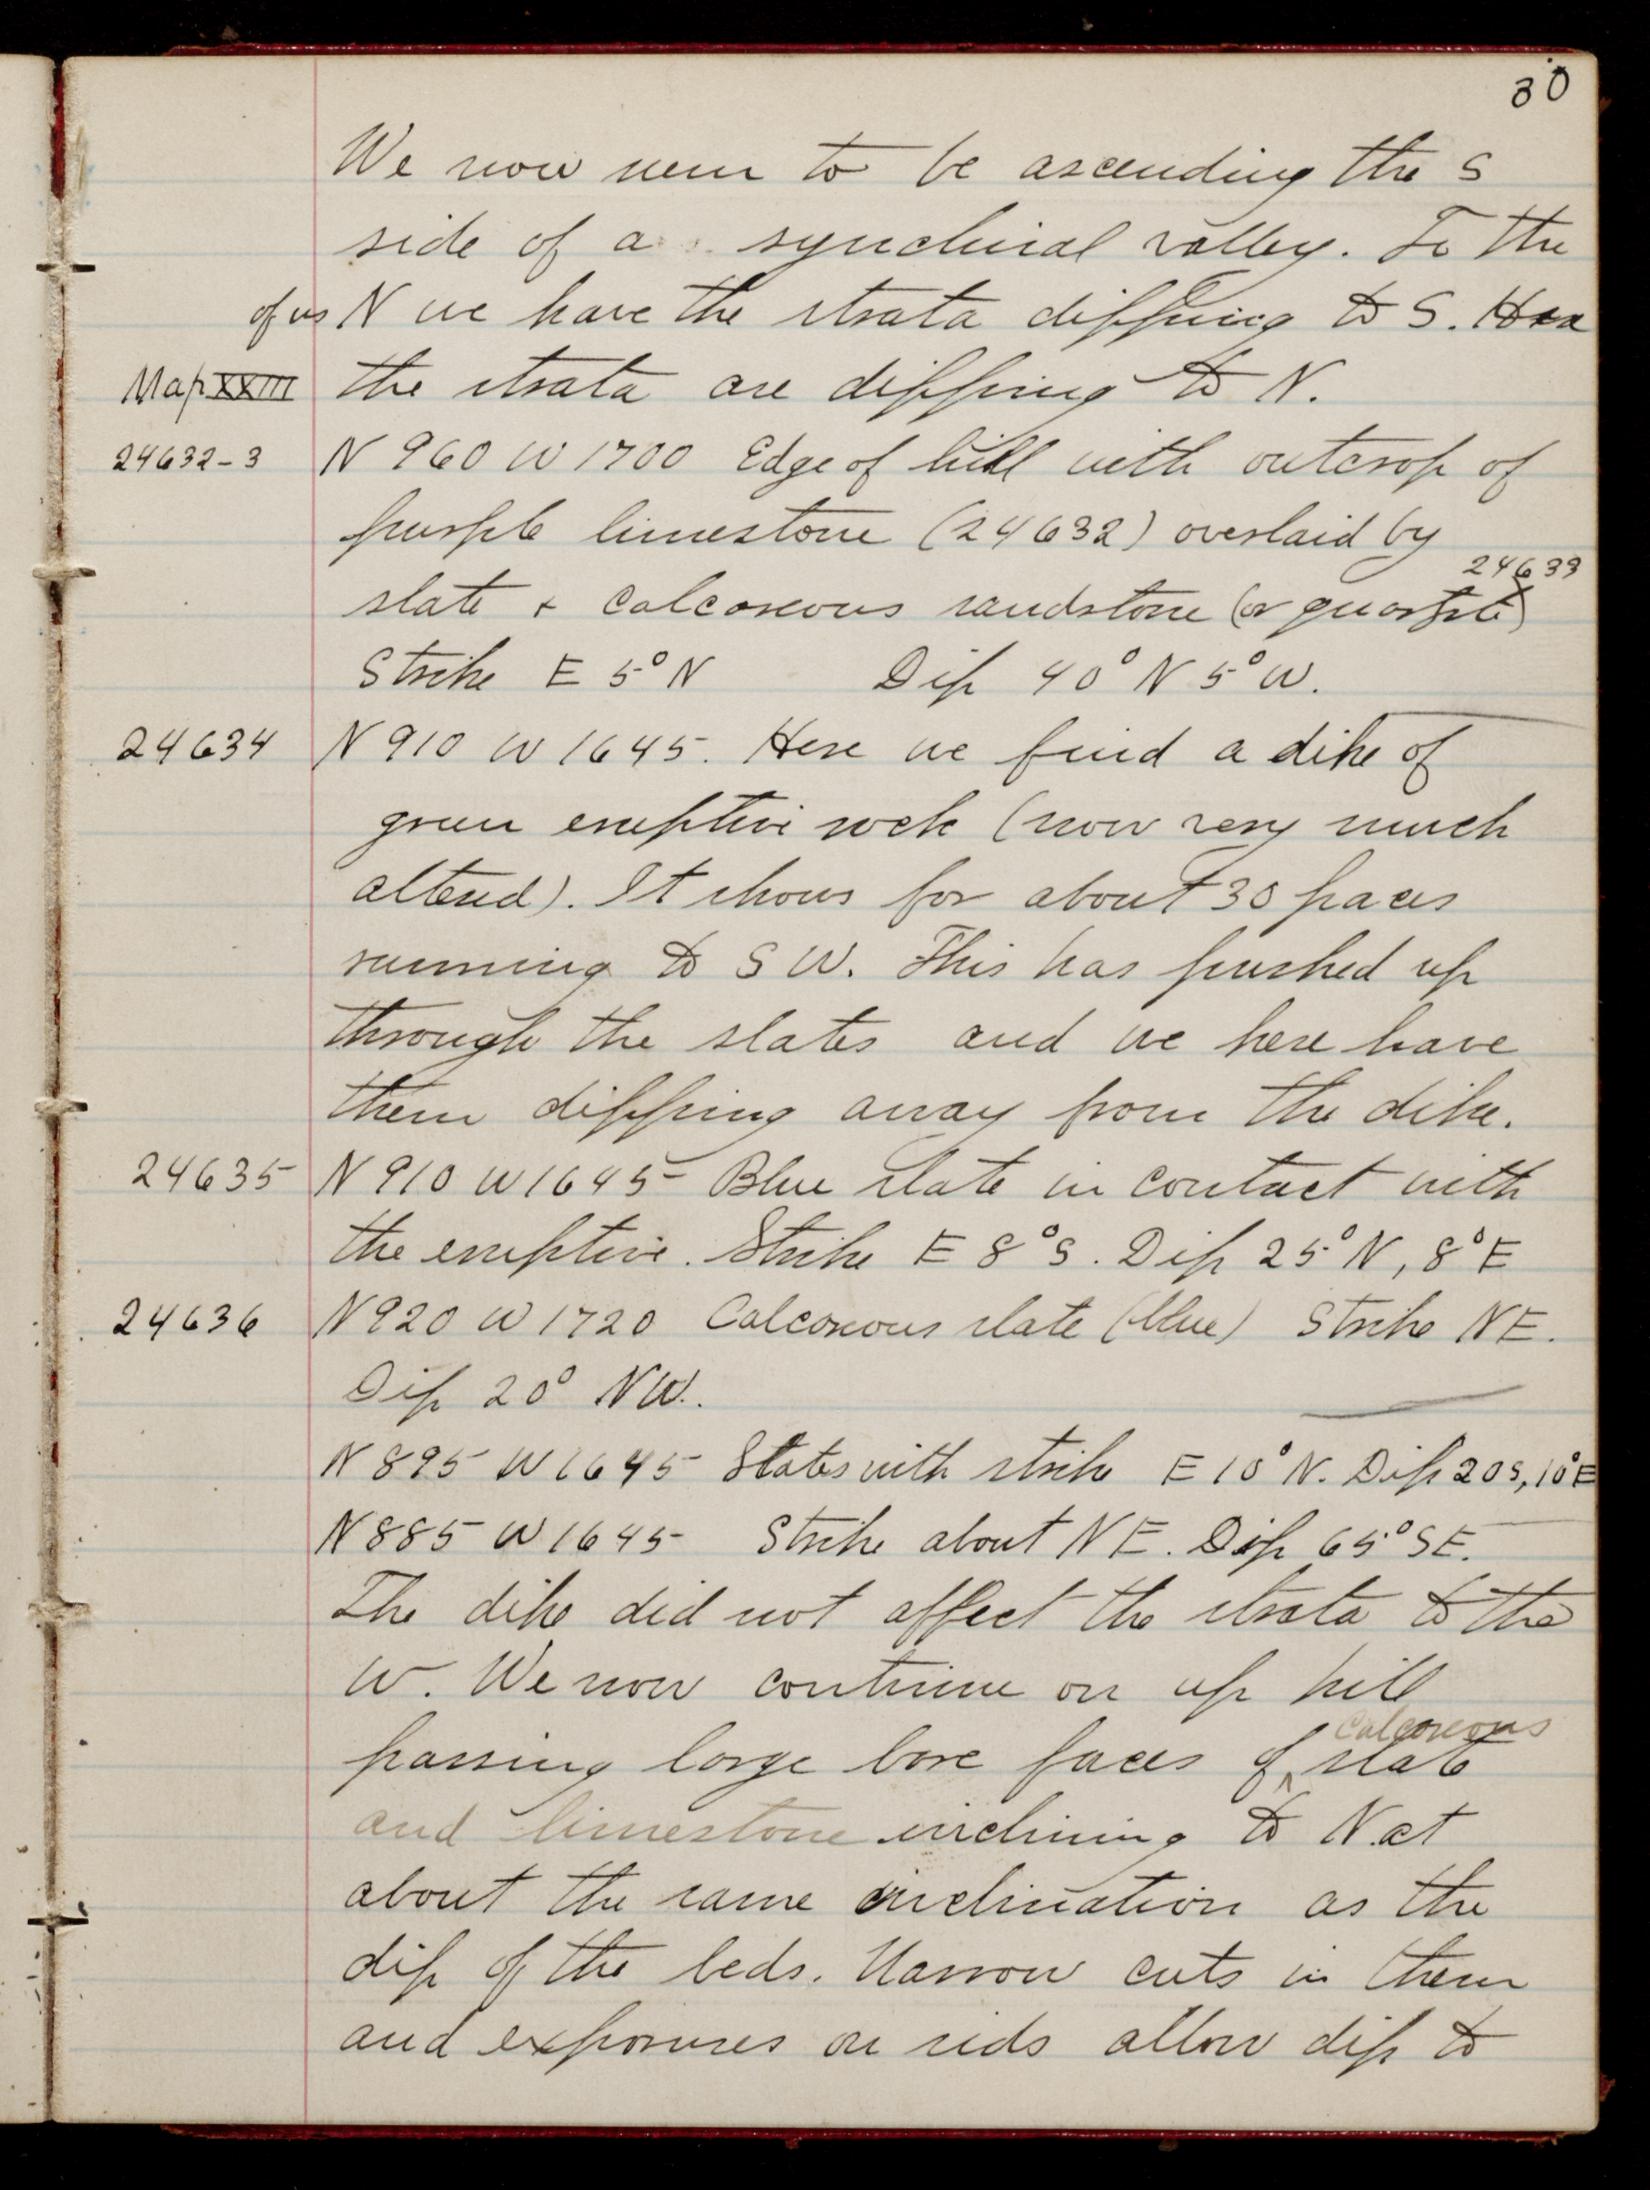 30
We now seem to be ascending the S
side of a synclinal valley. To the
of us N we have the strata dipping to S. Here
Map XXIII the strata are dipping to N.
24632-3 N 960 W 1700 Edge of hill with outcrop of
purple limestone (24632) overlaid by
24633
slate + calcareous sandstone (or quartzite)
Strike E 5° N Dip 40° N 5° W.
24634 N 910 W 1645. Here we find a dike of
green eruptive rock (now very much
altered). It shows for about 30 paces
running to S W. This has pushed up
through the slates and we here have
them dipping away from the dike.
24635 N 910 W 1645 Blue slate in contact with
the eruptive. Strike E 8° S. Dip 25° N, 8° E
24636 N 920 W 1720 Calcareous slate (blue) Strike NE.
Dip 20° NW.
N 895 W 1645 Slates with strike E 10° N. Dip 20 S, 10° E
N 885 W 1645 Strike about NE. Dip 65° SE.
The dike did not affect the strata to the
W. We now continue on up hill
calcareous
passing large bare faces of ‸ slate
and limestone inclining to N at
about the same inclination as the
dip of the beds. Narrow cuts in them
and exposures on sids allow dip to